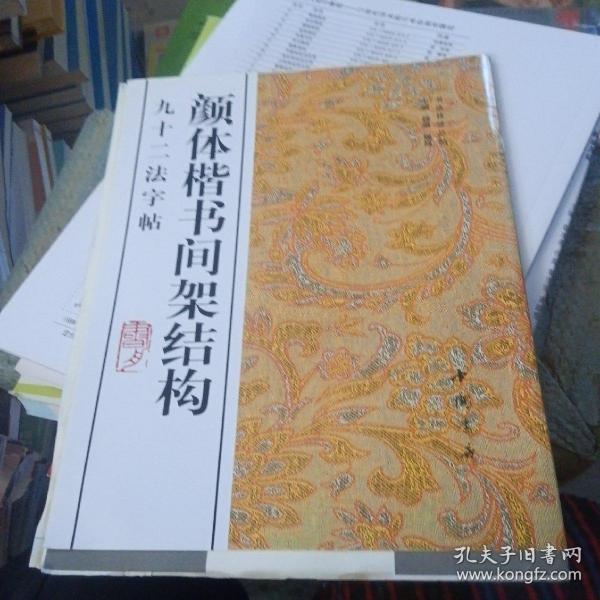 颜体楷书间架结构
九十二法字帖
中国书店
孔夫子旧书网
www.kongfz.com